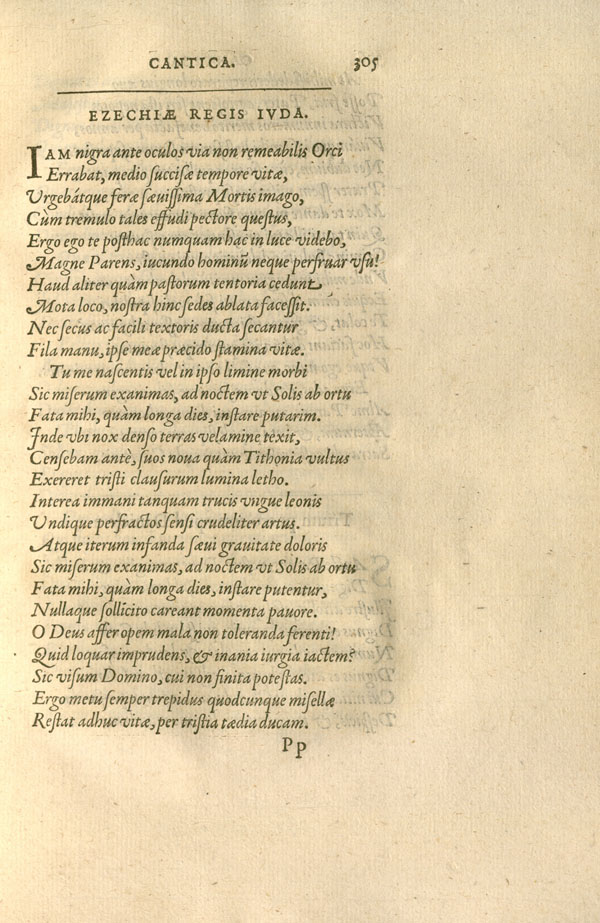 CANTICA. 305
EZECHIÆ REGIS IVDA.
IAM nigra ante oculos via non remeabilis Orci
Errabat, medio succisæ tempore vitæ,
Vrgebátque feræ sæuissima Mortis imago,
Cùm tremulo tales effudi pectore questus,
Ergo ego te posthac numquam hac in luce videbo,
Magne Parens, iucundo hominũ neque perfruar vsu!
Haud aliter quàm pastorum tentoria cedunt
Mota loco, nostra hinc sedes ablata facessit.
Nec secus ac facili textoris ducta secantur
Fila manu, ipse meæ præcido stamina vitæ.
Tu me nascentis vel in ipso limine morbi
Sic miserum exanimas, ad noctem vt Solis ab ortu
Fata mihi, quàm longa dies, instare putarim.
Inde vbi nox denso terras velamine texit,
Censebam antè, suos noua quàm Tithonia vultus
Exereret tristi clausurum lumina letho.
Interea immani tanquam trucis vngue leonis
Vndique perfractos sensi crudeliter artus.
Atque iterum infanda sæui grauitate doloris
Sic miserum exanimas, ad noctem vt Solis ab ortu
Fata mihi, quàm longa dies, instare putentur,
Nullaque sollicito careant momenta pauore.
O Deus affer opem mala non toleranda ferenti!
Quid loquar imprudens, & inania iurgia iactem?
Sic visum Domino, cui non finita potestas.
Ergo metu semper trepidus quodcunque misellæ
Restat adhuc vitæ, per tristia tædia ducam.
Pp